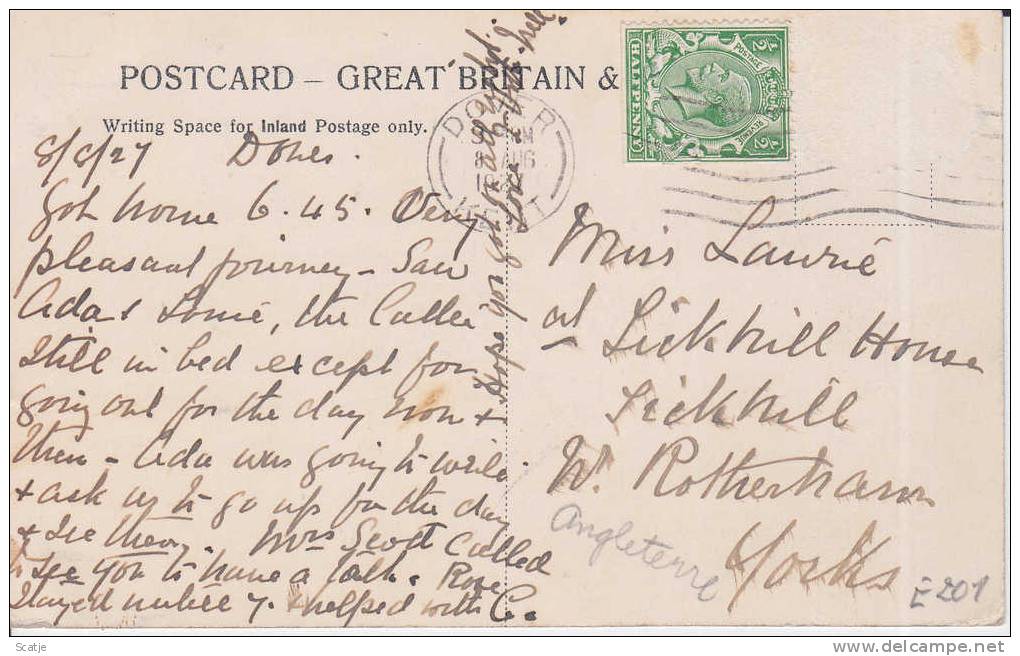 POSTCARD – GREAT BRITAIN &
Writing Space for Inland Postage only.
8/8/27 Dover.
Got home 6.45. Very
pleasant journey – Saw
Ada & Louie, the latter
still in bed except for
going out for the day now &
then – Ada was going to write
& ask us to go up for the day
& see them. Mrs Scott called
to see you to have a talk. Rose
stayed until 7. & helped with C.
Hope you got all
Love
hill.
DOVER
AUG
KENT
POSTAGE
REVENUE
½ HALFPENNY ½
Miss Laurie
at Tickhill House
Tickhill
Nr. Rotherham
Yorks
Angleterre
E201
Scatje
delcampe.net